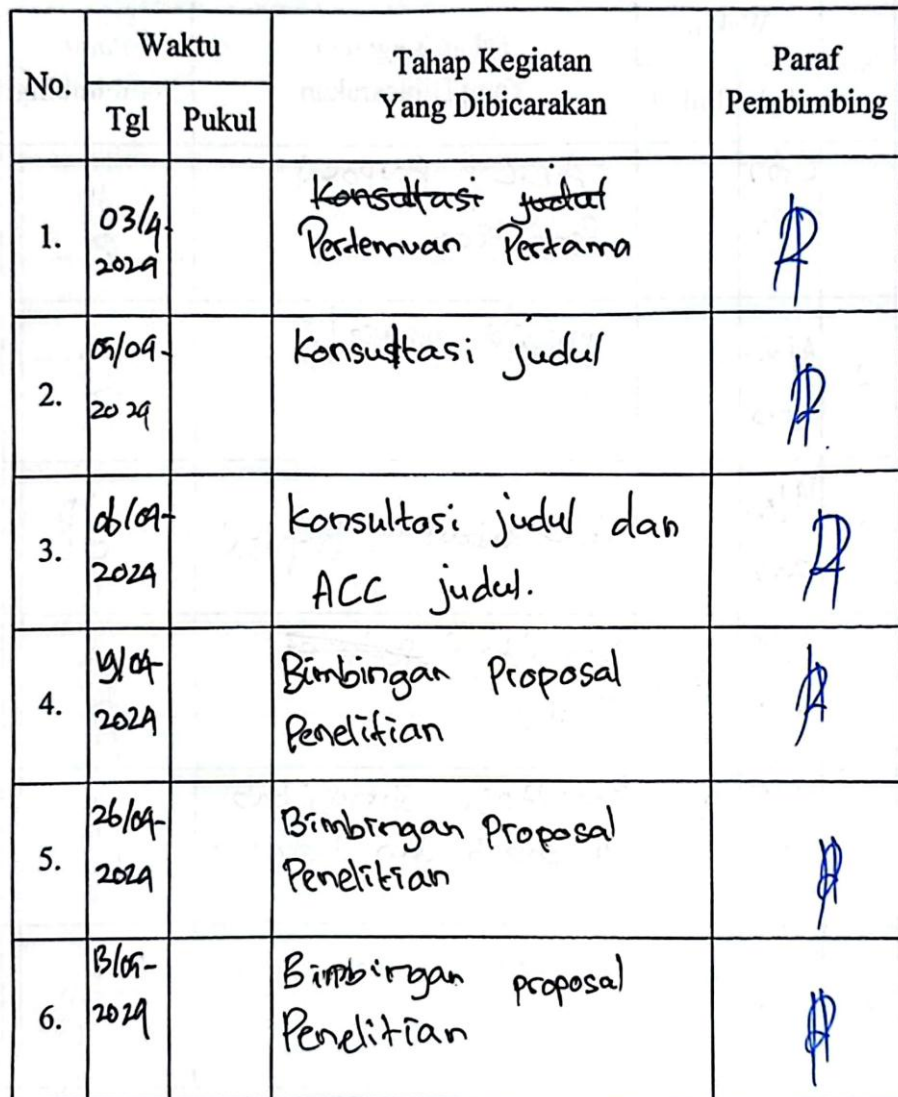 No.
Waktu
Tgl
Pukul
Tahap Kegiatan
Yang Dibicarakan
Paraf
Pembimbing
1.
03/4-
2024
Konsultasi judul
Pertemuan Pertama
2.
2024
Konsultasi judul
3.
06/04-
2024
Konsultasi judul dan
ACC judul.
4.
19/04-
2024
Bimbingan Proposal
Penelitian
5.
26/04-
2024
Bimbingan Proposal
Penelitian
6.
13/05-
2024
Bimbingan proposal
Penelitian